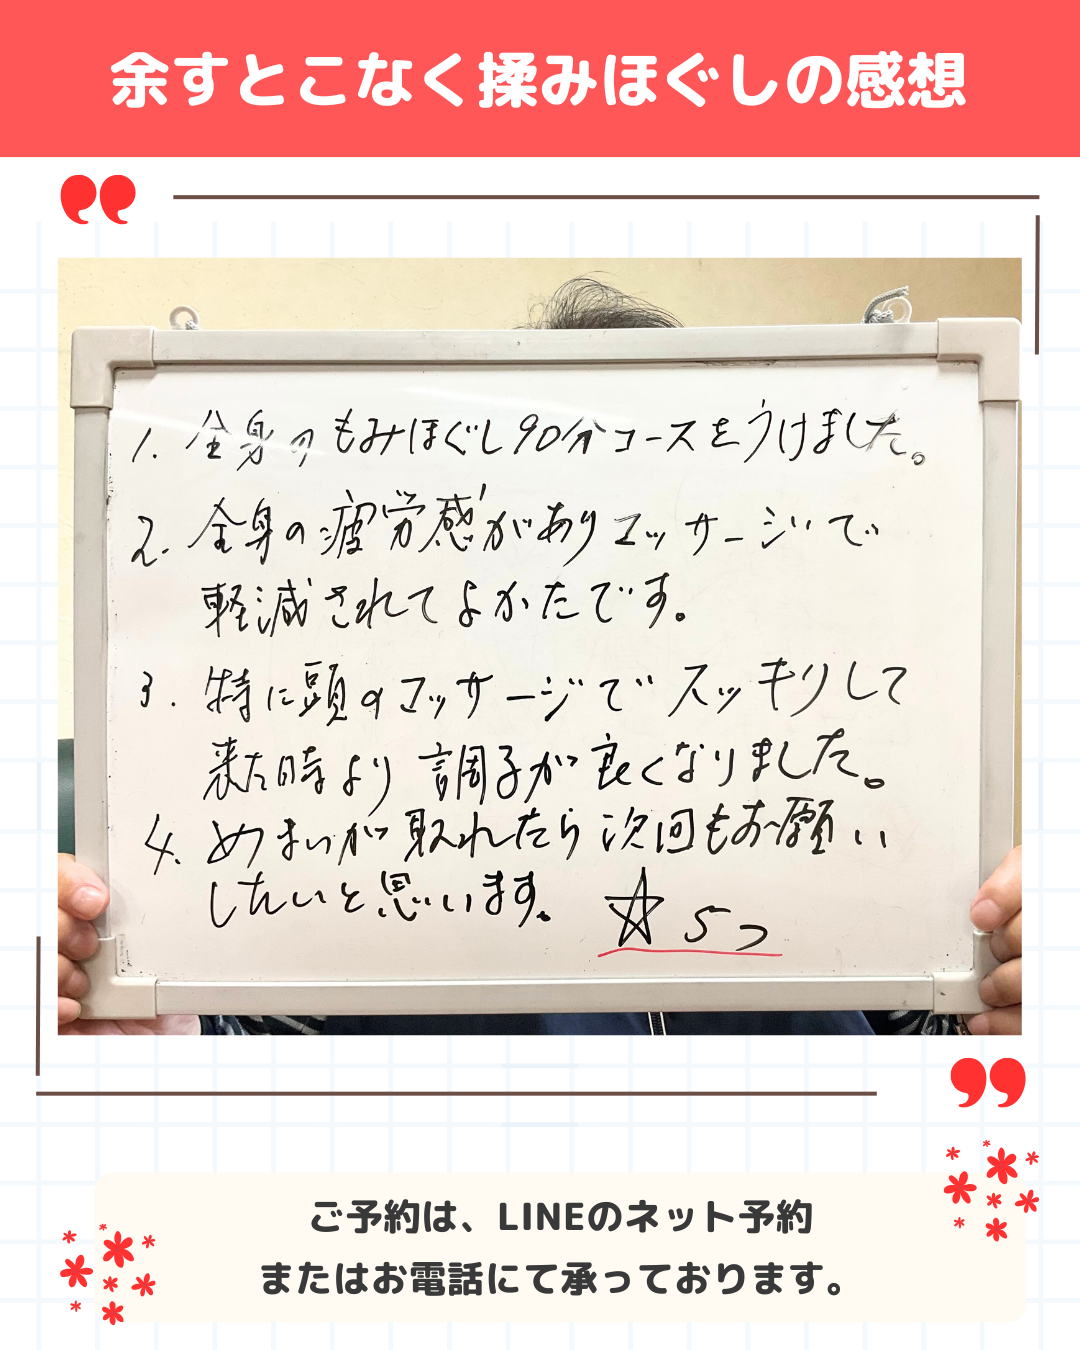 余すとこなく揉みほぐしの感想
1. 全身のもみほぐし90分コースをうけました。
2. 全身の疲労感がありマッサージで
軽減されてよかたです。
3. 特に頭のマッサージでスッキリして
来た時より調子が良くなりました。
4. めまいが取れたら次回もお願い
したいと思います。
☆5つ
ご予約は、LINEのネット予約
またはお電話にて承っております。